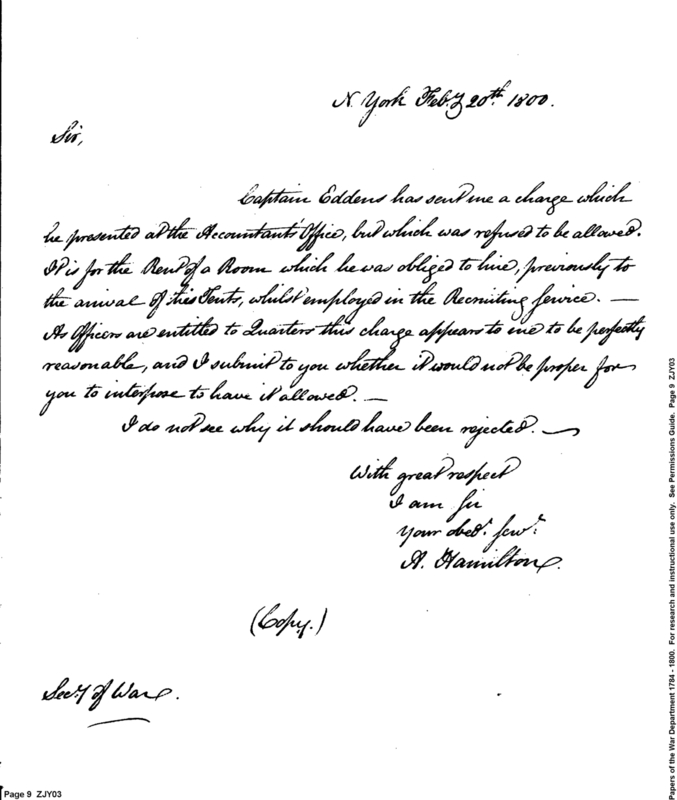 N. York Feb.y 20th. 1800.
Sir,
Captain Eddens has sent me a charge which
he presented at the Accountant's Office, but which was refused to be allowed.
It is for the Rent of a Room which he was obliged to hire, previously to
the arrival of his Tents, whilst employed in the Recruiting Service. —
As Officers are entitled to Quarters this charge appears to me to be perfectly
reasonable, and I submit to you whether it would not be proper for
you to interpose to have it allowed. —
I do not see why it should have been rejected. —
With great respect
I am Sir
Your obed.t Serv.t
A. Hamilton
(Copy.)
Sec.y of War.
Page 9 ZJY03
Papers of the War Department 1784 - 1800. For research and instructional use only. See Permissions Guide. Page 9 ZJY03